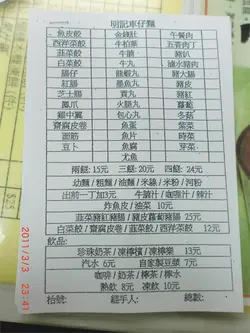 明記車仔麵
魚皮餃 金錢肚 牛餐肉
西洋菜餃 牛柏葉 五香肉丁
韮菜餃 牛腩 豬扒
白菜餃 牛丸 滷水豬肉
腸仔 龍蝦丸 豬大腸
紅腸 墨魚丸 豬皮
芝士腸 貢丸 豬紅
鳳爪 墨魚丸 蘿蔔
雞中翼 包心丸 冬菇
齋腐皮卷 魚片 時菜
面筋 魚蛋 紫菜
豆卜 魚腐 芽菜
尤魚
兩餸: 15元 三餸: 20元 四餸: 24元
幼麵 / 粗麵 / 油麵 / 米線 / 米粉 / 河粉
出前一丁加3元 牛腩汁 / 咖喱汁 / 辣汁
炸魚皮 / 油菜 10元
韮菜豬紅豬腸 / 豬皮蘿蔔豬腸 25元
白菜餃 / 齋腐皮卷 / 韮菜餃 / 西洋菜餃 22元
飲品:
珍珠奶茶 / 凍檸檬 / 凍檸樂 13元
汽水 6元 自家製豆漿 7元
咖啡 / 奶茶 / 檸茶 / 檸水
熱飲 8元 凍飲 10元
枱號: 經手人: 總數:
2011/3/3 23:41